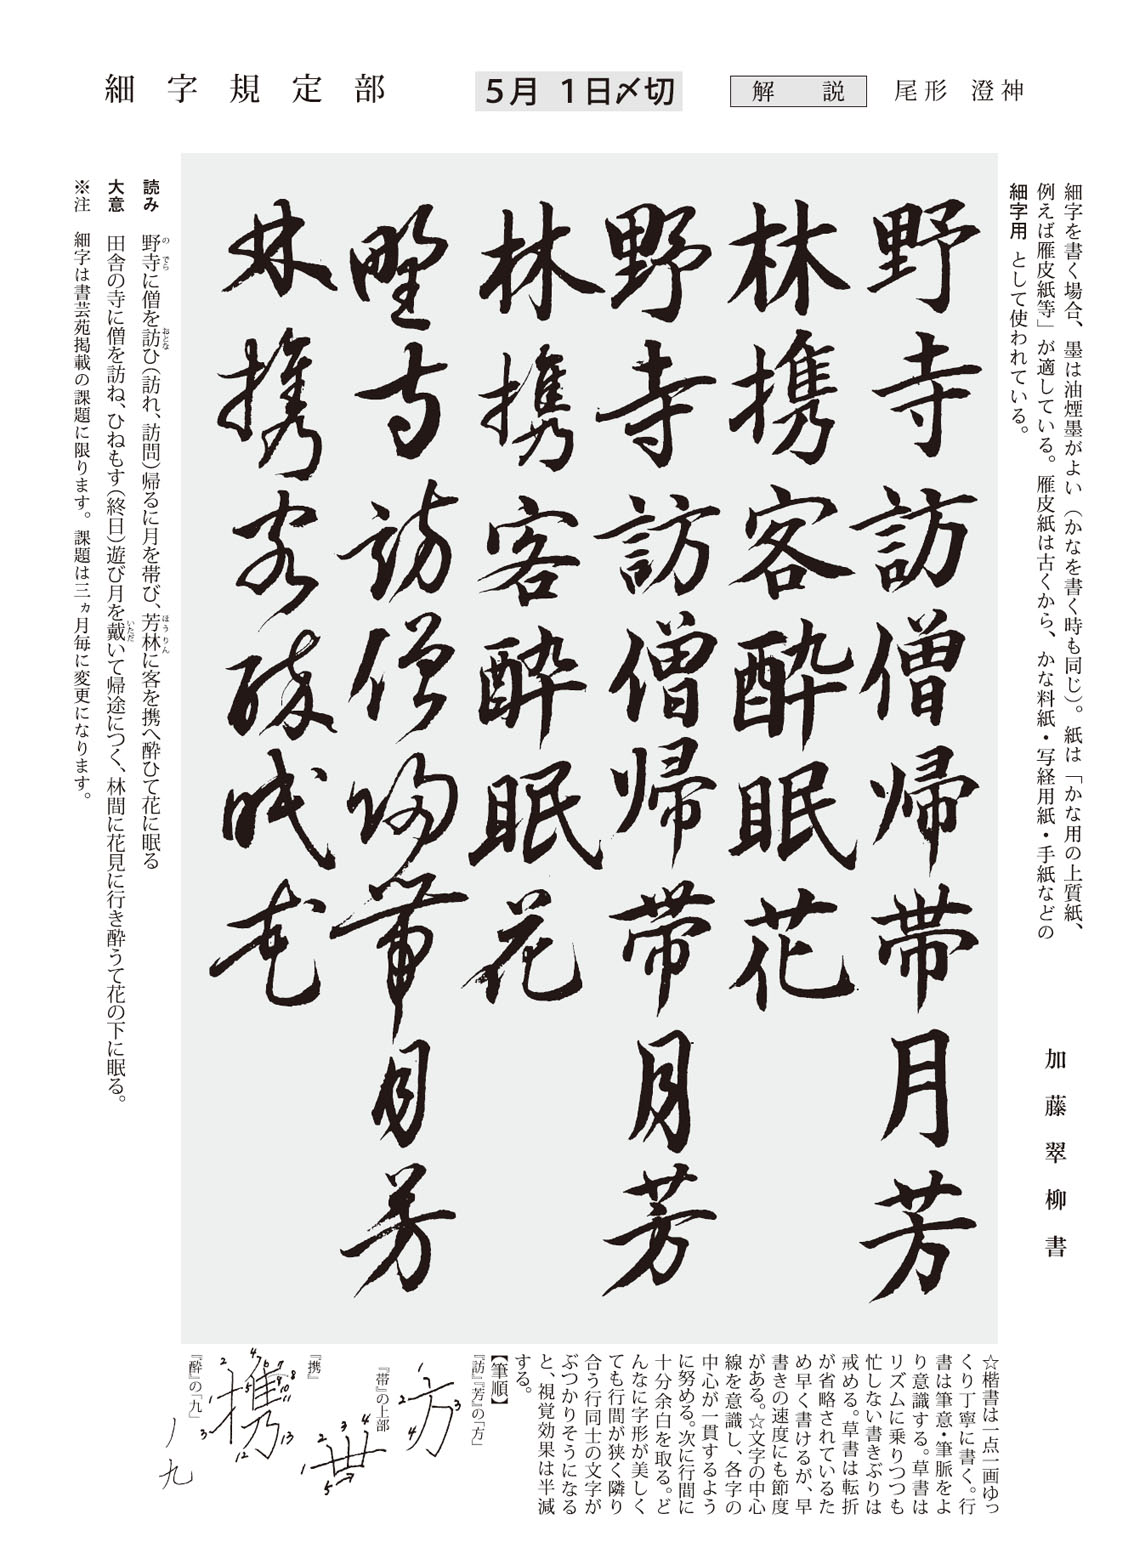 細字規定部
5月 1日〆切
解説
尾形 澄神
細字を書く場合、墨は油煙墨がよい（かなを書く時も同じ）。紙は「かな用の上質紙、
例えば雁皮紙等」が適している。雁皮紙は古くから、かな料紙・写経用紙・手紙などの
細字用 として使われている。
加藤翠柳書
野寺訪僧帰帯月芳
林携客酔眠花
野寺訪僧帰帯月芳
林携客酔眠花
野寺訪僧帰帯月芳
林携客酔眠花
読み 野寺に僧を訪ひ（訪れ、訪問）帰るに月を帯び、芳林に客を携へ酔ひて花に眠る
の でら おとな ほうりん
大意 田舎の寺に僧を訪ね、ひねもす（終日）遊び月を戴いて帰途につく、林間に花見に行き酔うて花の下に眠る。
いただ
※注 細字は書芸苑掲載の課題に限ります。課題は三ヵ月毎に変更になります。
☆楷書は一点一画ゆっ
くり丁寧に書く。行
書は筆意・筆脈をよ
り意識する。草書は
リズムに乗りつつも
忙しない書きぶりは
戒める。草書は転折
が省略されているた
め早く書けるが、早
書きの速度にも節度
がある。☆文字の中心
線を意識し、各字の
中心が一貫するよう
に努める。次に行間に
十分余白を取る。ど
んなに字形が美しく
ても行間が狭く隣り
合う行同士の文字が
ぶつかりそうになる
と、視覚効果は半減
する。
【筆順】
『訪』『芳』の「方」
方
1 2 3 4
『帯』の上部
1 2 3 4 5
『携』
携
1 2 3 4 5 6 7 8 9 10 11 12 13
『酔』の「九」
ノ 九